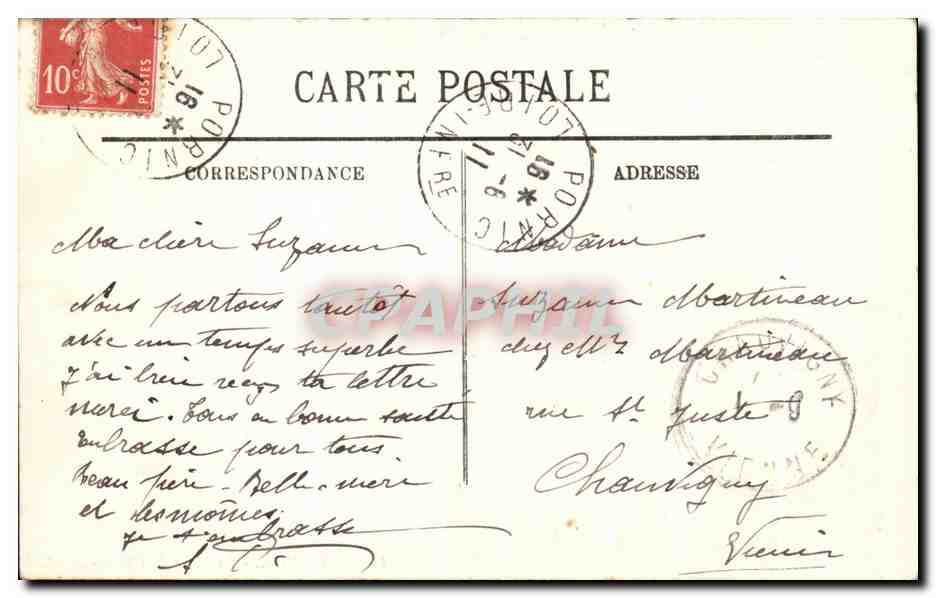 10c
POSTES
PORNIC
LOIRE-INFRE
16 * 31-6 11
CARTE POSTALE
CORRESPONDANCE
ADRESSE
Ma chère Suzanne
Nous partons tantôt
avec un temps superbe
j'ai bien reçu ta lettre
merci. Tous en bonne santé
Embrasse pour tous
beau père - Belle-mère
et les mômes
je t'embrasse
Madame
Suzanne Martineau
chez Mr Martineau
rue St Juste
Chauvigny
Vienne
CHAUVIGNY
VIENNE
CPAPHIL